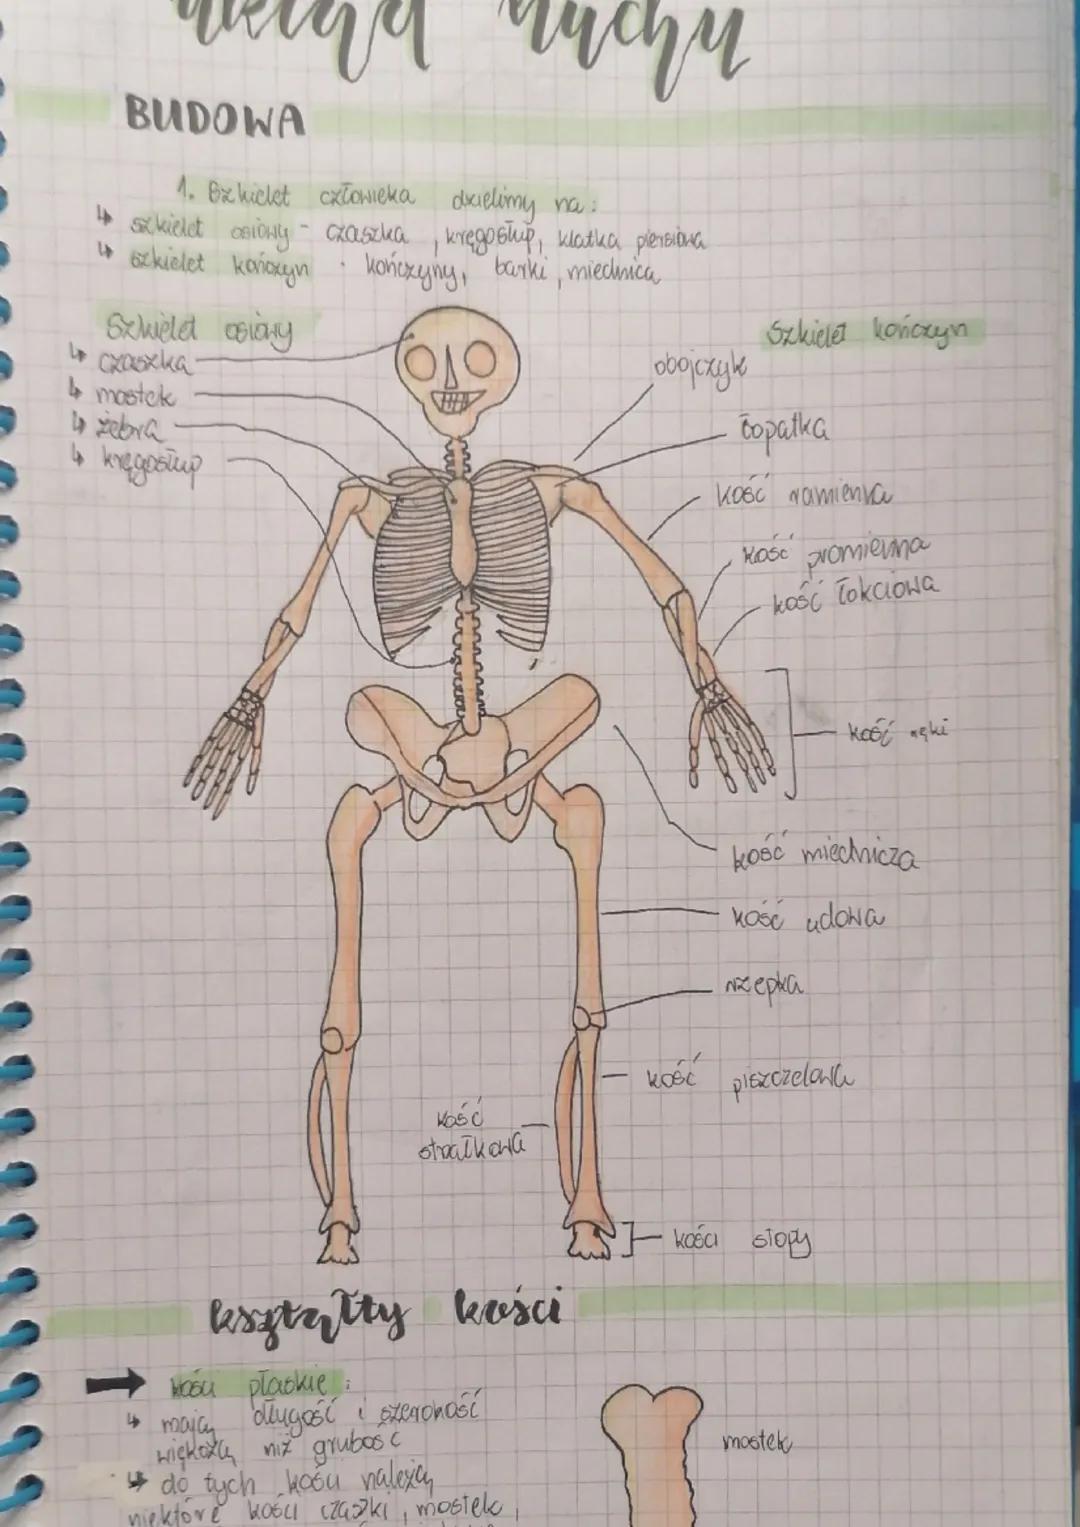 układ ruchu
BUDOWA
1. Szkielet człowieka dzielimy na:
↳ szkielet osiowy - czaszka, kręgosłup, klatka piersiowa
↳ szkielet kończyn - kończyny, barki, miednica
Szkielet osiowy
↳ czaszka
↳ mostek
↳ żebra
↳ kręgosłup
Szkielet kończyn
obojczyk
łopatka
kość ramienna
kość promienna
kość łokciowa
kość ręki
kość miednicza
kość udowa
rzepka
kość piszczelowa
kość
strzałkowa
kości stopy
kształty kości
→ kości płaskie:
↳ mają długość i szerokość
większą niż grubość
↳ do tych kości należą
niektóre kości czaszki, mostek,
mostek